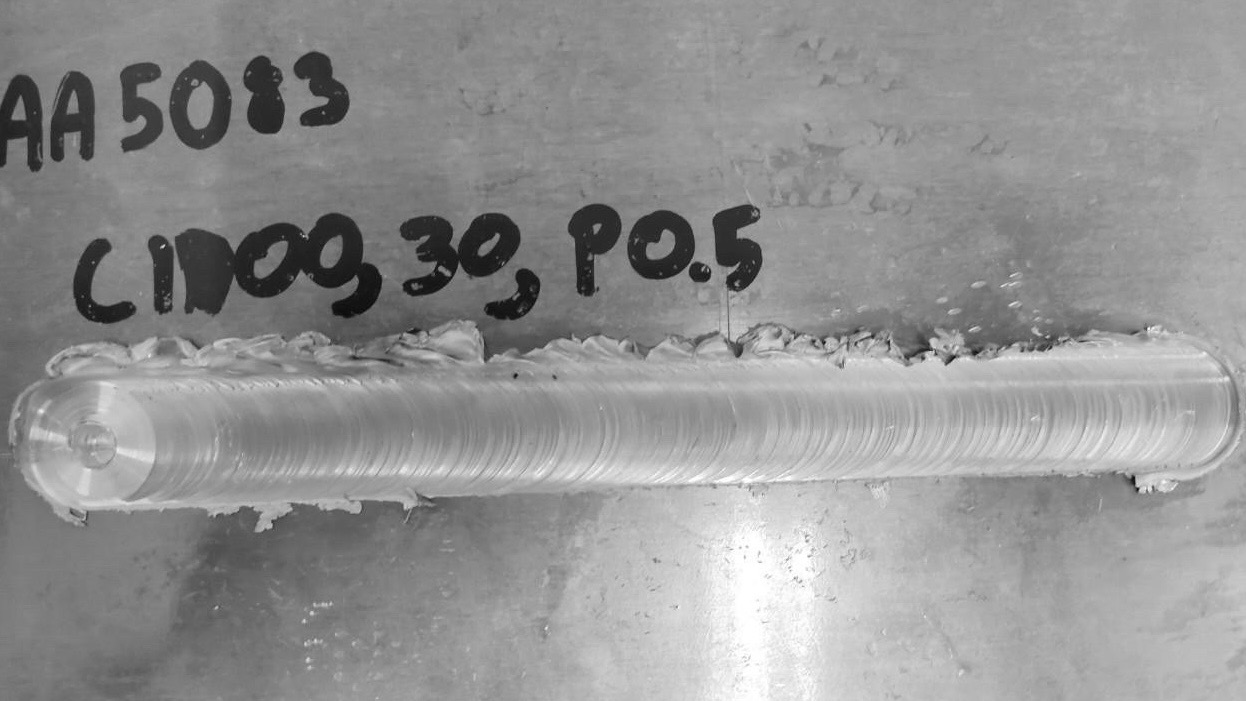 AA 5083
C1100, 30, P0.5